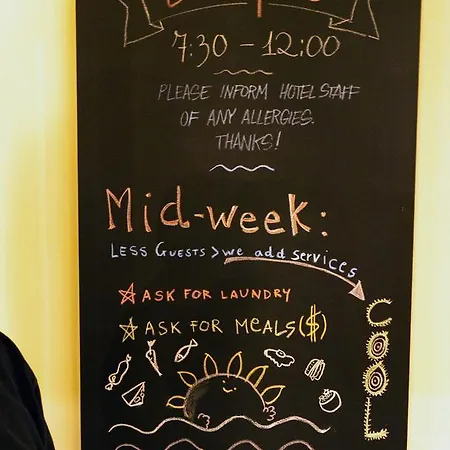 7:30 – 12:00
PLEASE INFORM HOTEL STAFF
OF ANY ALLERGIES.
THANKS!
Mid-week:
LESS GUESTS > we add services
ASK FOR LAUNDRY
ASK FOR MEALS($)
COOL